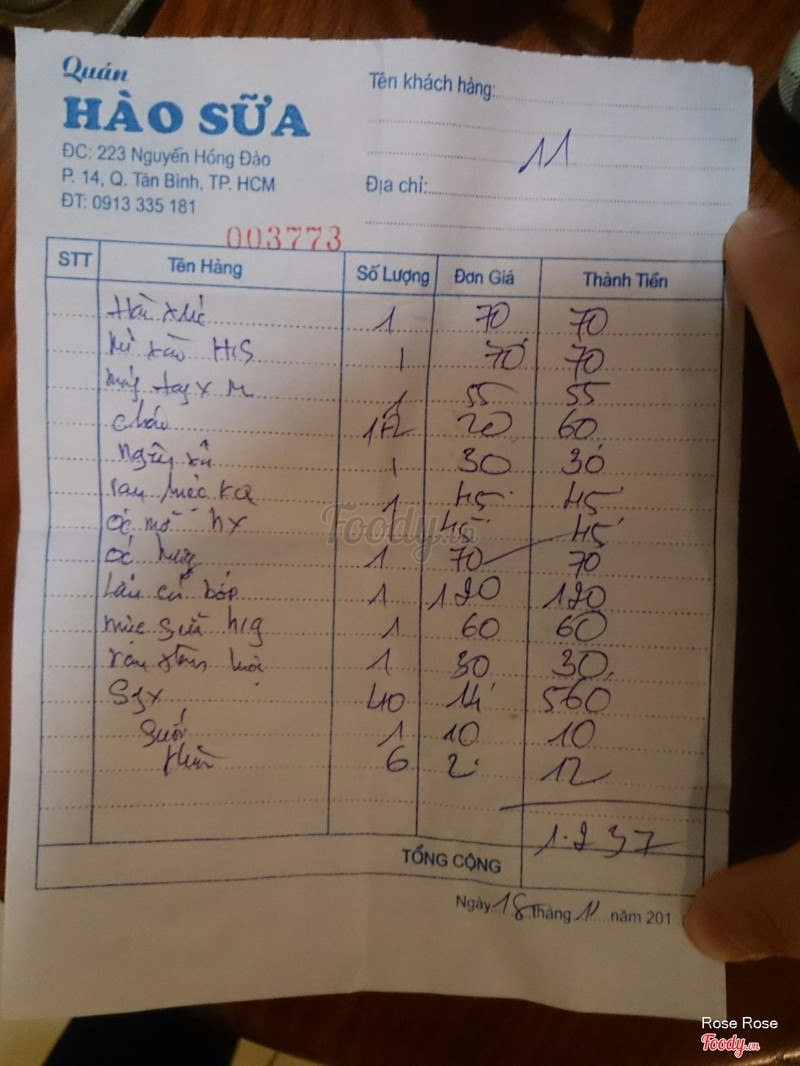 Quán
HÀO SỮA
ĐC: 223 Nguyễn Hồng Đào
P. 14, Q. Tân Bình, TP. HCM
ĐT: 0913 335 181
Tên khách hàng:
11
Địa chỉ:
003773
STT Tên Hàng Số Lượng Đơn Giá Thành Tiền
1 70 70
H/S 1 70 70
1 55 55
cháo 1+2 20 60
1 30 30
rau 1 45 45
ốc mỡ hx 45 45
ốc hương 1 70 70
Lẩu cá bóp 1 120 120
mực sữa h/g 1 60 60
rau 1 30 30
Sgx 40 14 560
Suối 1 10 10
khăn 6 2 12
1.237
TỔNG CỘNG
Ngày 18 Tháng 11 năm 201
Foody.vn
Rose Rose
Foody.vn